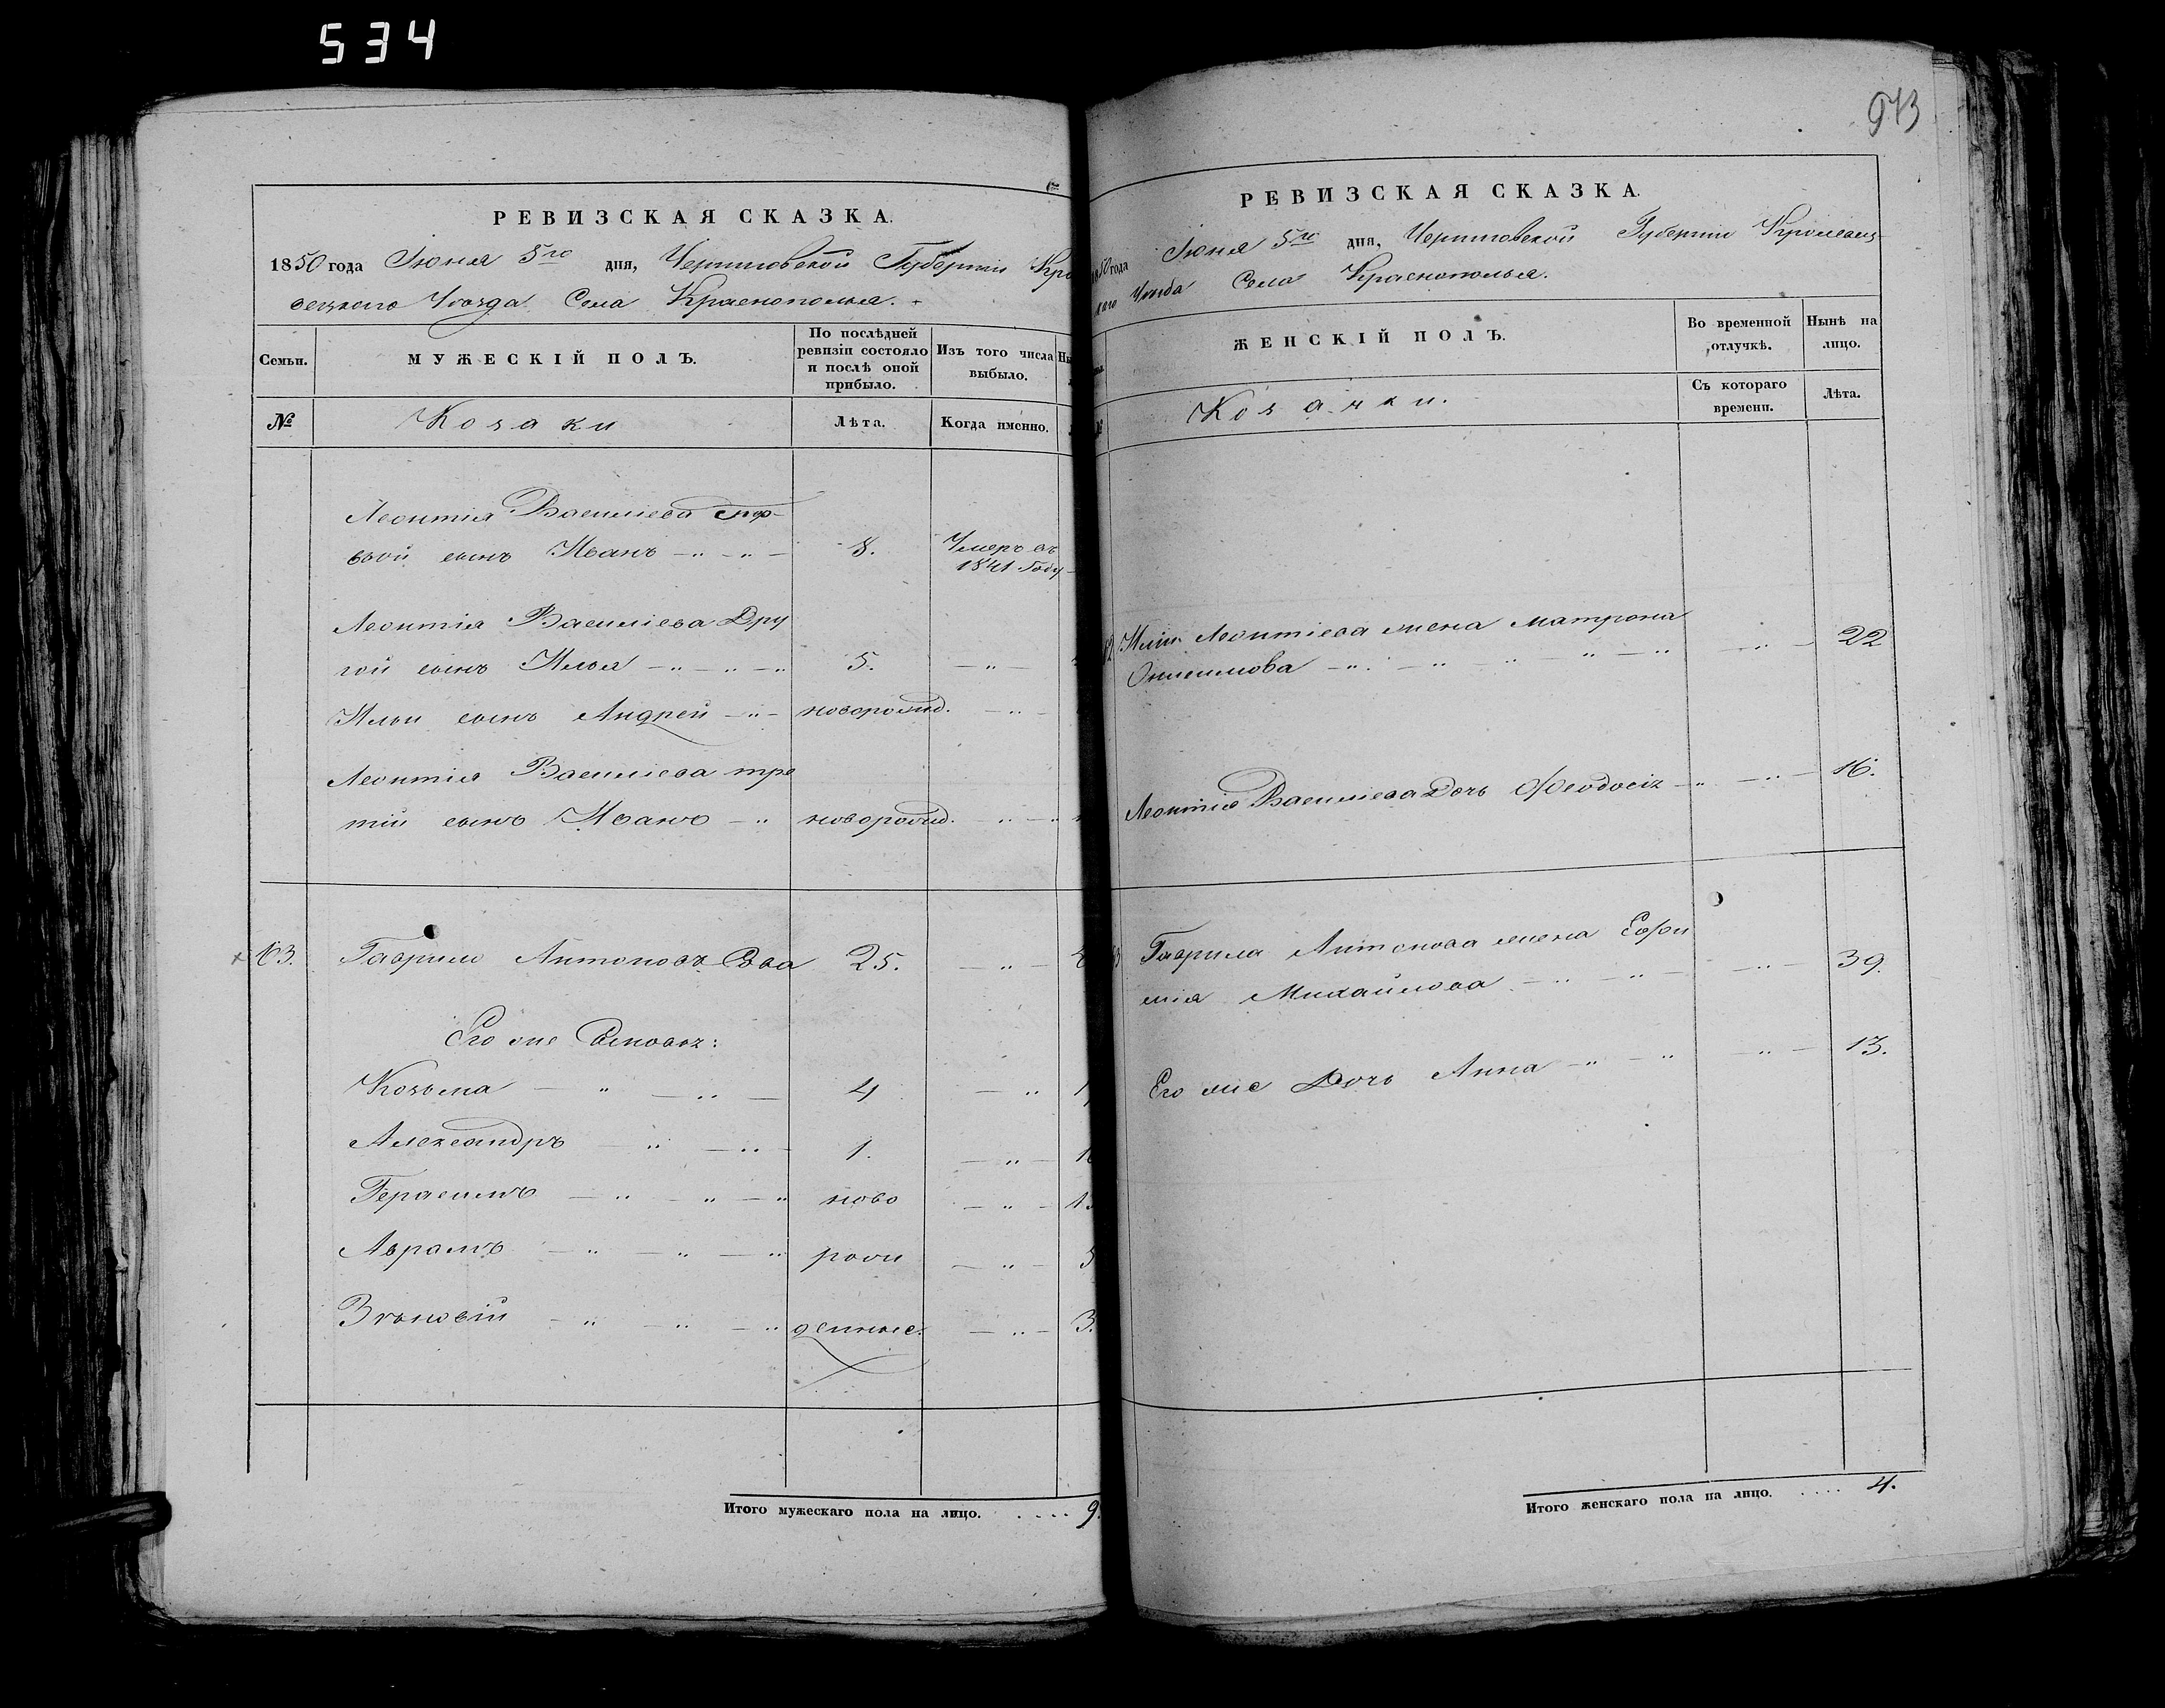 534
973
РЕВИЗСКАЯ СКАЗКА.
1850 года Іюня 5го дня, Черниговской Губерніи Кро
вецкого Уѣзда Села Краснополья.
Семьи.
МУЖЕСКІЙ ПОЛЪ.
По послѣдней ревизіи состояло и послѣ оной прибыло.
Изъ того числа выбыло.
№
Козаки
Лѣта.
Когда именно.
Леонтія Василіева пер-
вой сынъ Иванъ 8. Умеръ въ 1841 Году
Леонтія Василіева Дру
гой сынъ Илья 5.
Ильи сынъ Андрей новорожд.
Леонтія Василіева тре
тій сынъ Иванъ новорожд.
63. Гаврило Антоновъ 25.
Его же Сыновья:
Козьма 4
Александръ 1.
Герасимъ ново
Аврамъ рож
Зѣновій денные. 3.
Итого мужескаго пола на лицо. . . . . 9.
РЕВИЗСКАЯ СКАЗКА.
1850 года Іюня 5го дня, Черниговской Губерніи Кролевец
каго Уѣзда Села Краснополья.
ЖЕНСКІЙ ПОЛЪ.
Во временной отлучкѣ.
Нынѣ на лицо.
№
Козачки.
Съ котораго времени.
Лѣта.
62 Ильи Леонтіева жена Матрона
Онисимова 22
Леонтія Василіева Дочь Феодосія 16.
63 Гаврила Антонова жена Ефи
мія Михайлова 39.
Его же Дочь Анна 13.
Итого женскаго пола на лицо. . . . . 4.